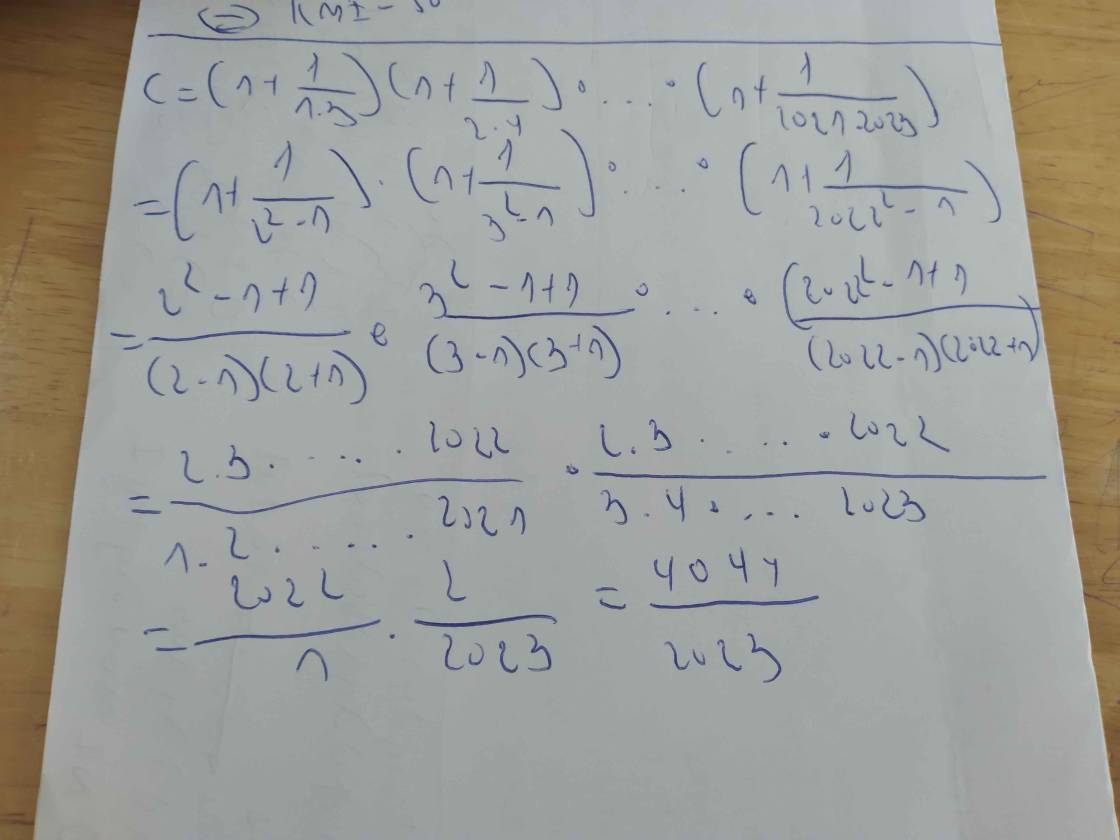 C = (1 + 1/1.3)(1 + 1/2.4) . .... . (1 + 1/2021.2023)
= (1 + 1/2² - 1) . (1 + 1/3² - 1) . .... . (1 + 1/2022² - 1)
= 2² - 1 + 1/(2 - 1)(2 + 1) . 3² - 1 + 1/(3 - 1)(3 + 1) . .... . (2022² - 1 + 1/(2022 - 1)(2022 + 1)
= 2.3. .... . 2022/1.2. .... . 2021 . 2.3. .... . 2022/3.4. ... 2023
= 2022/1 . 2/2023 = 4044/2023